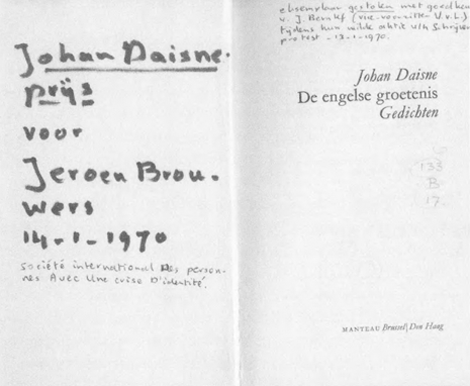 Johan Daisne.
prijs
voor
Jeroen Brou.
wers
14-1-1970
Société international Des person.
nes Avec Une crise D'identité.
exemplaar gestolen met goedkeu
v. J. Bernlef (vice-voorzitter V.v.L.)
tijdens hun wilde aktie uit Schrijver
protest - 13-1-1970.
Johan Daisne
De engelse groetenis
Gedichten
133
B
17
MANTEAU Brussel | Den Haag